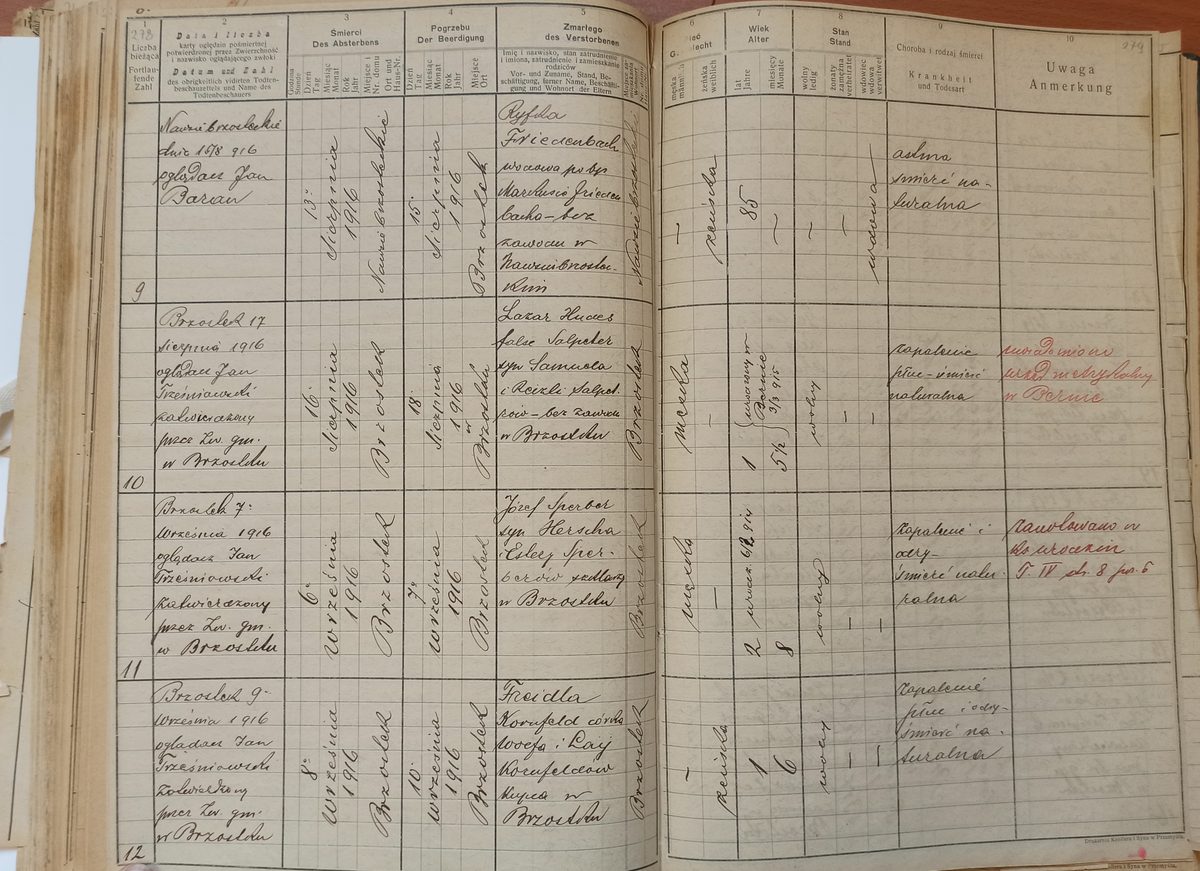 278
1
Liczba
bieżąca
Fortlau-
fende
Zahl
2
Data i liczba
karty oględzin pośmiertnej
potwierdzonej przez Zwierzchność
i nazwisko oglądającego zwłoki
Datum und Zahl
des obrigkeitlich vidierten Todten-
beschauzettels und Name des
Todtenbeschauers
3
Śmierci
Des Absterbens
Godzina
Stunde
Dzień
Tag
Miesiąc
Monat
Rok
Jahr
Miejsce i
Nr. domu
Ort und
Haus-Nr.
4
Pogrzebu
Der Beerdigung
Dzień
Tag
Miesiąc
Monat
Rok
Jahr
Miejsce
Ort
5
Zmarłego
des Verstorbenen
Imię i nazwisko, stan zatrudnienie
i imiona, zatrudnienie i zamieszkanie
rodziców
Vor- und Zuname, Stand, Beschäfti-
gung, ferner Name, Beschäfti-
gung und Wohnort der Eltern
6
Płeć
Geschlecht
męska
männlich
żeńska
weiblich
7
Wiek
Alter
lat
Jahre
miesięcy
Monate
8
Stan
Stand
wolny
ledig
żonaty
zamężna
verheiratet
wdowiec
wdowa
verwitwet
9
Choroba i rodzaj śmierci
Krankheit
und Todesart
10
279
Uwaga
Anmerkung
9
Nawsie brzosteckie
dnia 15/8 916
oglądacz Jan
Baran
13
Sierpnia
1916
Nawsie brzosteckie
15
Sierpnia
1916
Brzostek
Ryfka
Friedenbach
wdowa po bp
Markusie Frieden
bacha – bez
zawodu w
Nawsiu brzostec-
kim
–
żeńska
85
–
–
wdowa
astma
śmierć na-
turalna
10
Brzostek 17
sierpnia 1916
oglądacz Jan
Trześniowski
zatwierdzony
przez Zw. gm.
w Brzostku
16
Sierpnia
1916
Brzostek
18
Sierpnia
1916
w
Brzostku
Lazar Hudes
false Salpeter
syn Samuela
i Reizli Salpet
rów – bez zawodu
w Brzostku
Brzostek
męska
–
1
5½
3/3 915
wolny
–
–
zapalenie
płuc – śmierć
naturalna
uwiadomiono
urząd metrykalny
11
Brzostek 7
września 1916
oglądacz Jan
Trześniowski
zatwierdzony
przez Zw. gm.
w Brzostku
6
września
1916
Brzostek
7
września
1916
Brzostek
Józef Sperber
syn Herscha
i Estery Sper-
berów
w Brzostku
Brzostek
męska
–
2
8
wolny
–
–
zapalenie i
odry –
śmierć natu-
ralna
zanotowano w
ks. urodzin
T. IV str. 8 poz. 6
12
Brzostek 9
września 1916
oglądacz Jan
Trześniowski
zatwierdzony
przez Zw. gm.
w Brzostku
8
września
1916
Brzostek
10
września
1916
Brzostek
Freidla
Kornfeld córka
Josefa i Laji
Kornfeldów
kupca w
Brzostku
Brzostek
–
żeńska
1
6
wolny
–
–
zapalenie
płuc i odry –
śmierć na-
turalna